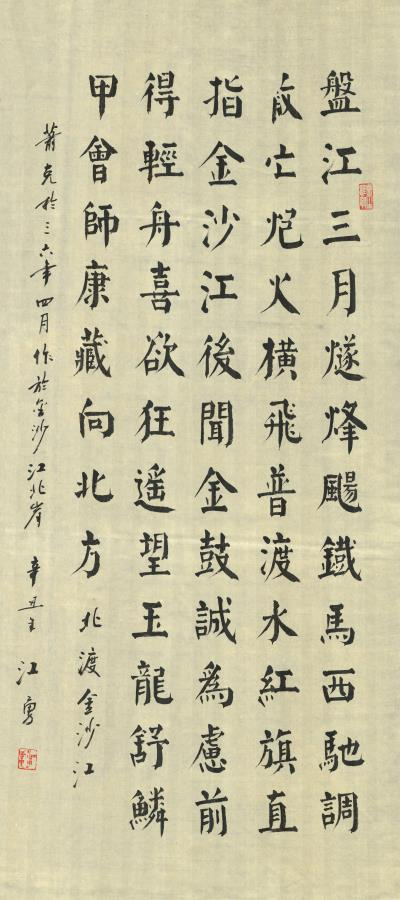 盤江三月燧烽颺鐵馬西馳調
忙炮火橫飛普渡水紅旗直
指金沙江後聞金鼓誠為慮前
得輕舟喜欲狂遥望玉龍舒鱗
甲會師康藏向北方 北渡金沙江
蕭克於三六年四月作於金沙江北岸 辛丑冬 江勇